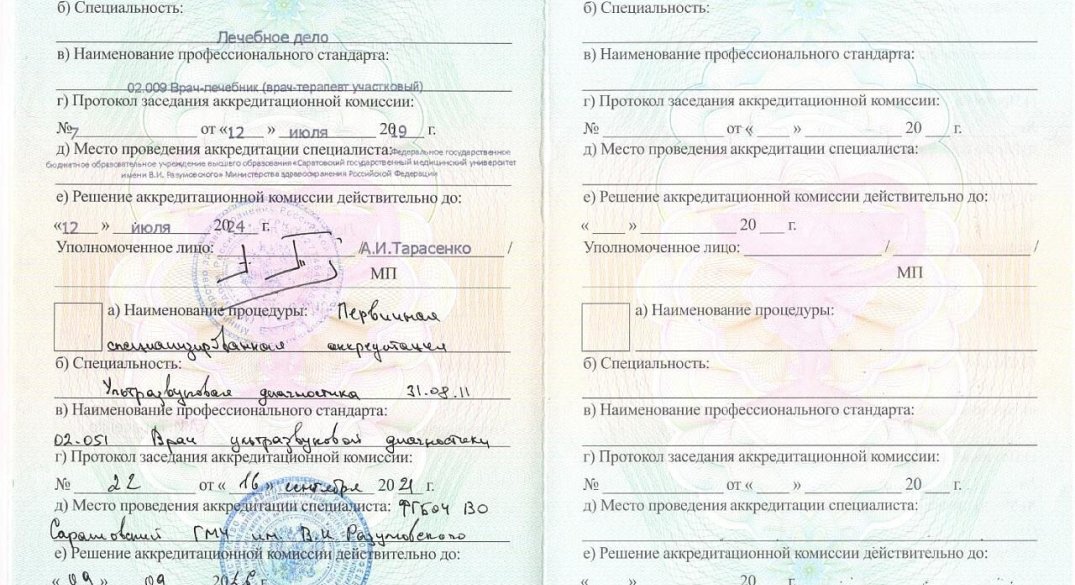 б) Специальность:
Лечебное дело
в) Наименование профессионального стандарта:
02.009 Врач-лечебник (врач-терапевт участковый)
г) Протокол заседания аккредитационной комиссии:
№ 7 от «12» июля 2019 г.
д) Место проведения аккредитации специалиста: Федеральное государственное
бюджетное образовательное учреждение высшего образования «Саратовский государственный медицинский университет
имени В.И. Разумовского» Министерства здравоохранения Российской Федерации
е) Решение аккредитационной комиссии действительно до:
«12» июля 2024 г.
Уполномоченное лицо: / А.И.Тарасенко /
МП
а) Наименование процедуры: Первичная
специализированная аккредитация
б) Специальность:
Ультразвуковая диагностика 31.08.11
в) Наименование профессионального стандарта:
02.051 Врач ультразвуковой диагностики
г) Протокол заседания аккредитационной комиссии:
№ 22 от «16» сентября 2021 г.
д) Место проведения аккредитации специалиста: ФГБОУ ВО
Саратовский ГМУ им. В.И Разумовского
е) Решение аккредитационной комиссии действительно до:
«09» 09 20 г.
б) Специальность:
в) Наименование профессионального стандарта:
г) Протокол заседания аккредитационной комиссии:
№ от « » 20 г.
д) Место проведения аккредитации специалиста:
е) Решение аккредитационной комиссии действительно до:
« » 20 г.
Уполномоченное лицо: / /
МП
а) Наименование процедуры:
б) Специальность:
в) Наименование профессионального стандарта:
г) Протокол заседания аккредитационной комиссии:
№ от « » 20 г.
д) Место проведения аккредитации специалиста:
е) Решение аккредитационной комиссии действительно до:
« » 20 г.